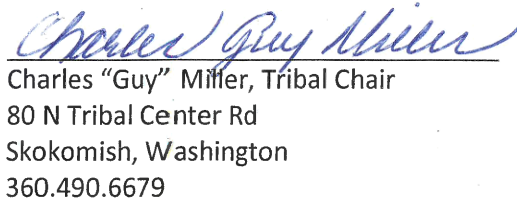 Charles Guy Miller
Charles “Guy” Miller, Tribal Chair
80 N Tribal Center Rd
Skokomish, Washington
360.490.6679